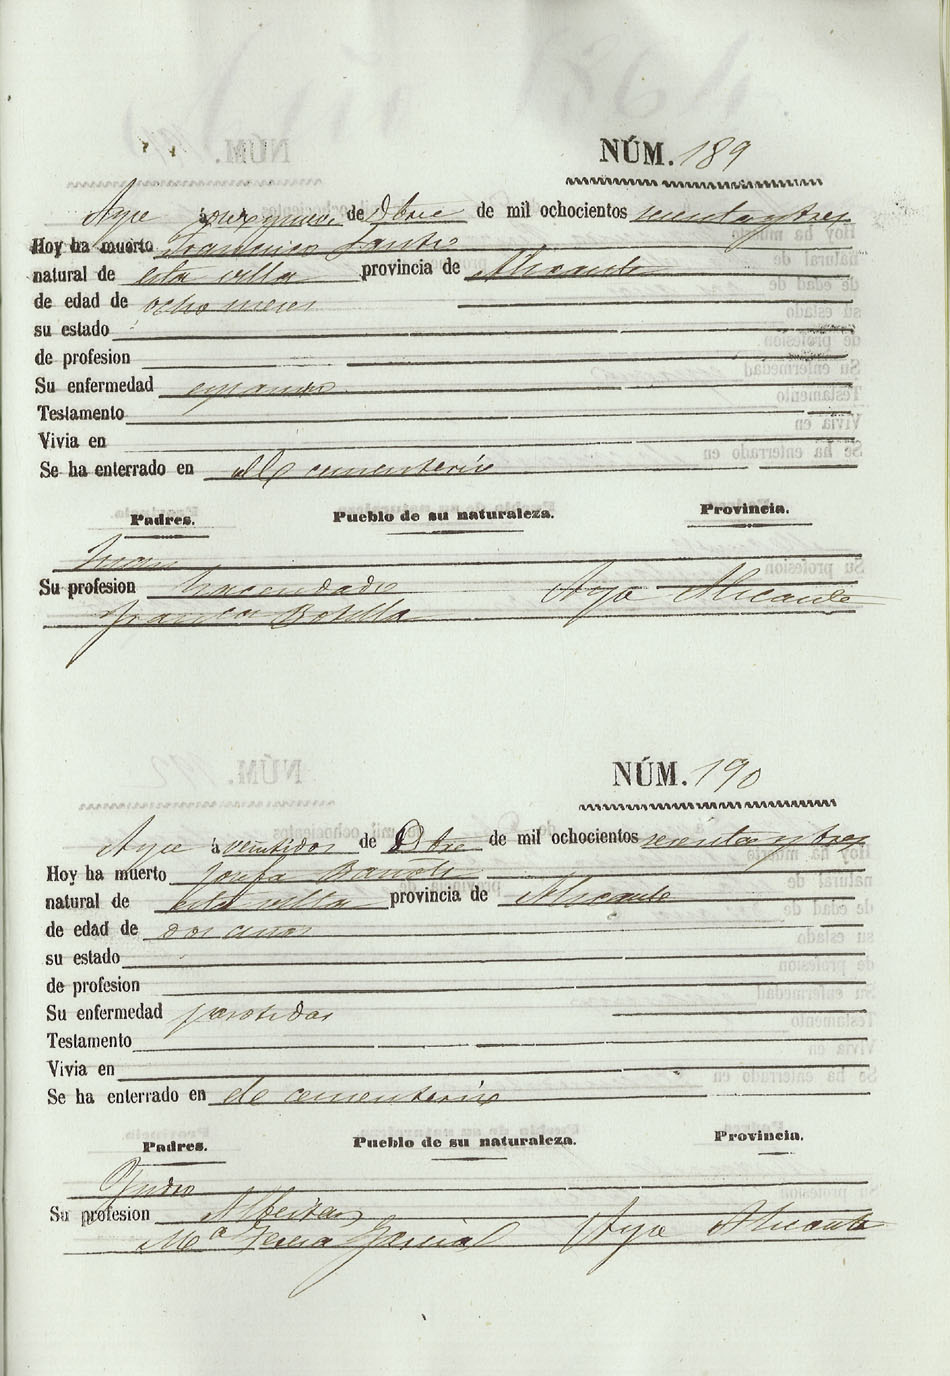 NÚM. 189
Aspe à de Dbre de mil ochocientos sesenta y tres
Hoy ha muerto Francisco
natural de esta villa provincia de Alicante
de edad de ocho meses
su estado
de profesion
Su enfermedad espasmo
Testamento
Vivia en
Se ha enterrado en cementerio
Padres. Pueblo de su naturaleza. Provincia.
Juan
Su profesion hacendado Aspe Alicante
Franca Botella
NÚM. 190
Aspe à veintidos de Dbre de mil ochocientos sesenta y tres
Hoy ha muerto Josefa
natural de esta villa provincia de Alicante
de edad de dos años
su estado
de profesion
Su enfermedad parotidas
Testamento
Vivia en
Se ha enterrado en cementerio
Padres. Pueblo de su naturaleza. Provincia.
Su profesion Albeitar
Mª Teresa Aspe Alicante